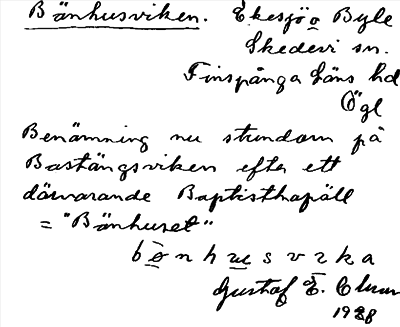 Bänhusviken. Ekesjö o Byle
Skedevi sn.
Finspånga Läns hd
Ögl
Benämning nu stundom på
Bastängsviken efter ett
därvarande Baptistkapäll
= "Bänhuset"
bönhusvika
Gustaf E.
1928